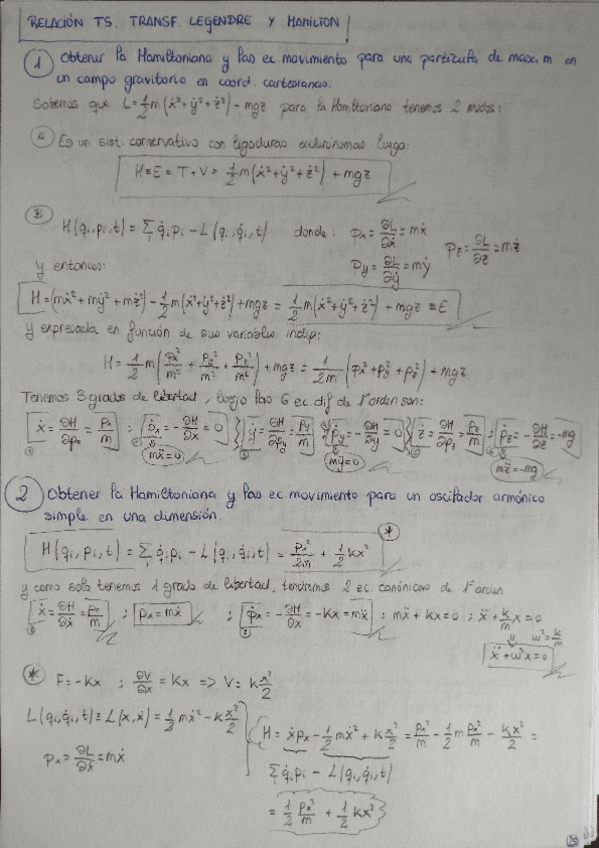 RELACIÓN T5. TRANSF. LEGENDRE Y HAMILTON
1 Obtener la Hamiltoniana y las ec movimiento para una partícula de masa m en
un campo gravitorio en coord. cartesianas.
Sabemos que L = 1/2 m(ẋ² + ẏ² + ż²) - mgz para la Hamiltoniana tenemos 2 modos:
A Es un sist. conservativo con ligaduras esclerónomas luego:
H ≡ E = T + V = 1/2 m(ẋ² + ẏ² + ż²) + mgz
B H(qi, pi, t) = Σ q̇i pi - L(qi, q̇i, t) donde: px = ∂L/∂ẋ = mẋ pz = ∂L/∂ż = mż
py = ∂L/∂ẏ = mẏ
y entonces:
H = (mẋ² + mẏ² + mż²) - 1/2 m(ẋ² + ẏ² + ż²) + mgz = 1/2 m(ẋ² + ẏ² + ż²) + mgz ≡ E
y expresada en función de sus variables indep:
H = 1/2 m(px²/m² + py²/m² + pz²/m²) + mgz = 1/2m (px² + py² + pz²) + mgz
Tenemos 3 grados de libertad, luego las 6 ec. dif de 1º orden son:
ẋ = ∂H/∂px = px/m ; ṗx = -∂H/∂x = 0 } ẏ = ∂H/∂py = py/m ; ṗy = -∂H/∂y = 0 } ż = ∂H/∂pz = pz/m ; ṗz = -∂H/∂z = -mg
mẍ = 0 mÿ = 0 mz̈ = -mg
2 Obtener la Hamiltoniana y las ec movimiento para un oscilador armónico
simple en una dimensión.
H(qi, pi, t) = Σ q̇i pi - L(qi, q̇i, t) = px²/2m + 1/2 kx² *
y como solo tenemos 1 grado de libertad, tendremos 2 ec. canónicas de 1º orden
ẋ = ∂H/∂ẋ = px/m ; px = mẋ ; ṗx = -∂H/∂x = -kx = mẍ ; mẍ + kx = 0 ; ẍ + k/m x = 0
ω² = k/m
ẍ + ω²x = 0
* F = -kx ; ∂V/∂x = kx => V = k x²/2
L(qi, q̇i, t) ≡ L(x, ẋ) = 1/2 mẋ² - k x²/2
px = ∂L/∂ẋ = mẋ
H = ẋpx - 1/2 mẋ² + k x²/2 = px²/m - 1/2 m px²/m - kx²/2 =
Σ q̇i pi - L(qi, q̇i, t)
= 1/2 px²/m + 1/2 kx²